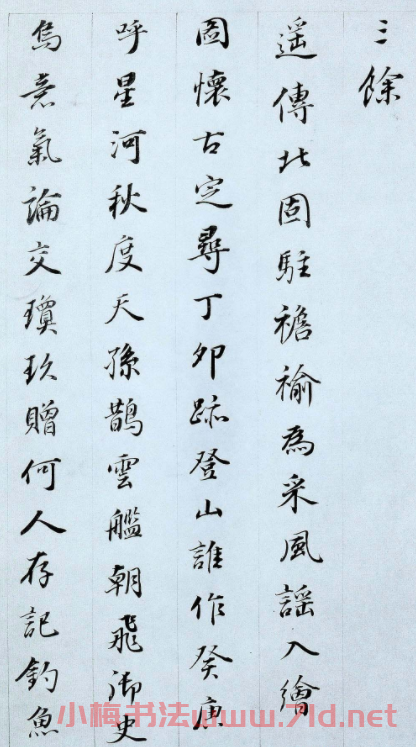 三餘
遥傳北固駐襜褕為采風謡入繪
圖懷古定尋丁卯跡登山誰作癸庚
呼星河秋度天孫鵲雲艦朝飛御史
烏意氣論交瓊玖贈何人存記釣魚
小梅书法www.7ld.net